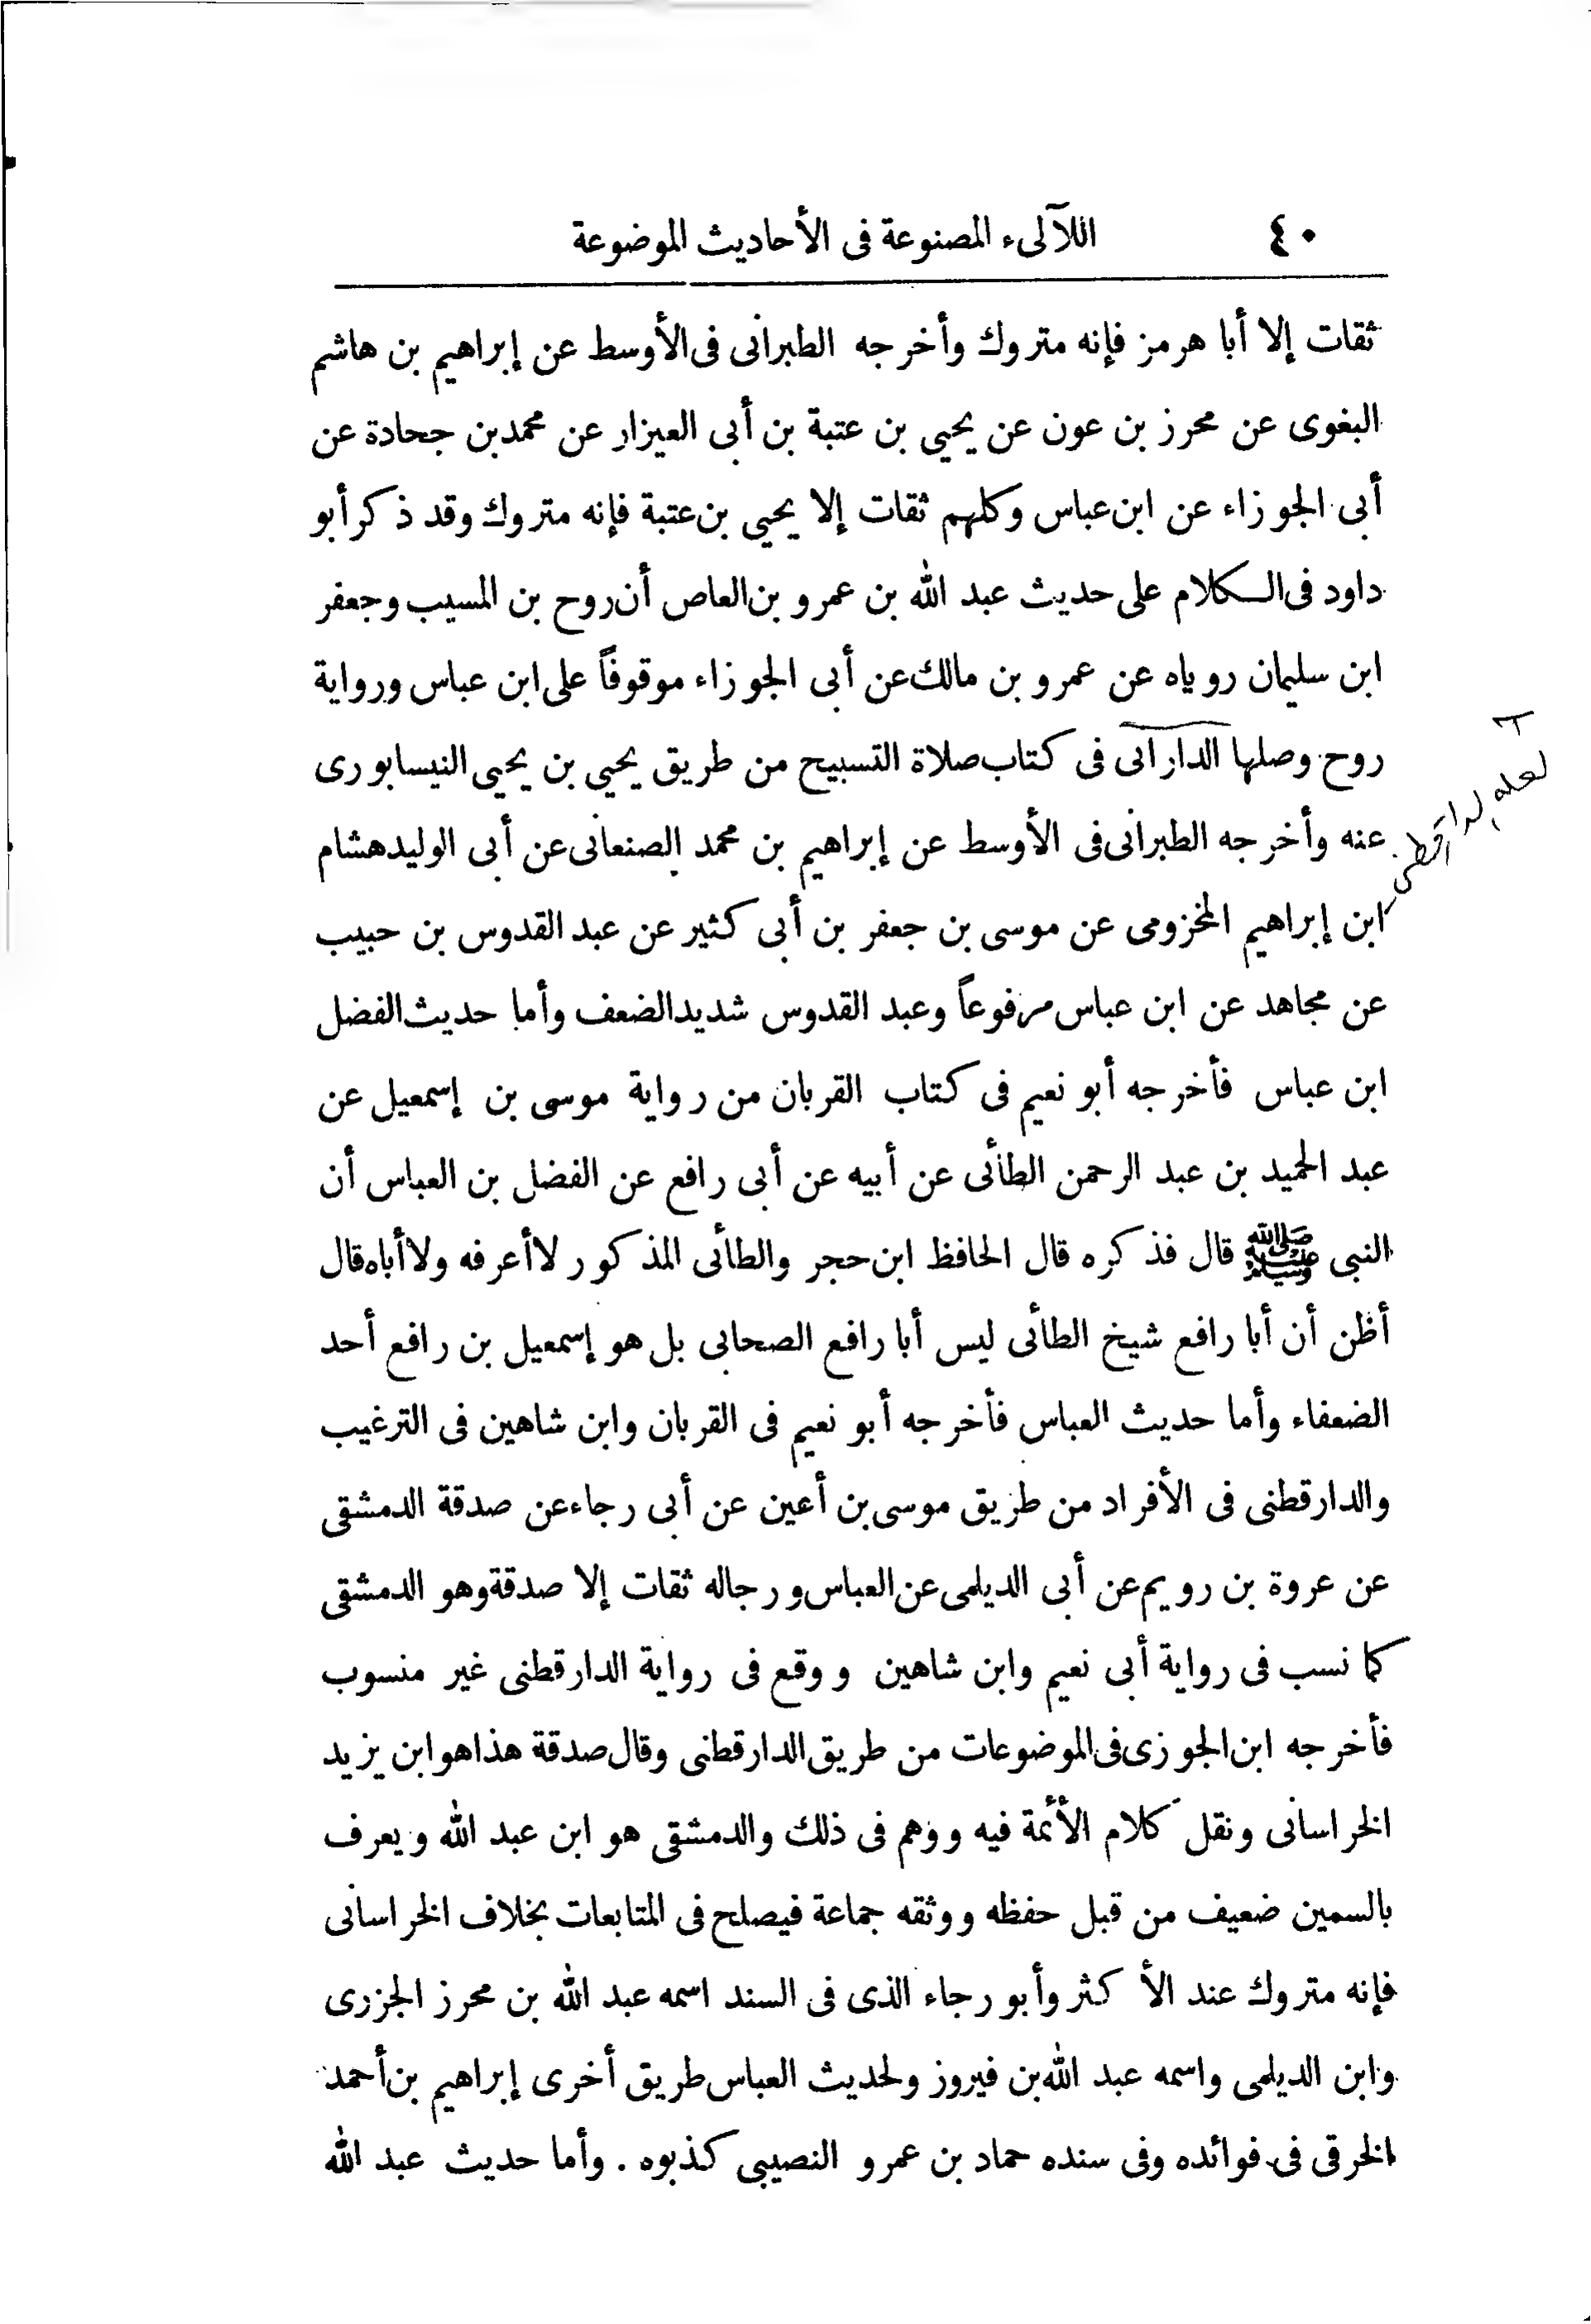 ٤٠ اللآلىء المصنوعة فى الأحاديث الموضوعة
ثقات إلا أبا هرمز فإنه متروك وأخرجه الطبرانى فى الأوسط عن إبراهيم بن هاشم
البغوى عن محرز بن عون عن يحيى بن عتبة بن أبى العيزار عن محمد بن جحادة عن
أبى الجوزاء عن ابن عباس وكلهم ثقات إلا يحيى بن عتبة فإنه متروك وقد ذكر أبو
داود فى الكلام على حديث عبد الله بن عمرو بن العاص أن روح بن المسيب وجعفر
ابن سليمان روياه عن عمرو بن مالك عن أبى الجوزاء موقوفاً على ابن عباس ورواية
روح وصلها الدارانى فى كتاب صلاة التسبيح من طريق يحيى بن يحيى النيسابورى
لعله الدارقطنى
عنه وأخرجه الطبرانى فى الأوسط عن إبراهيم بن محمد الصنعانى عن أبى الوليد هشام
ابن إبراهيم المخزومى عن موسى بن جعفر بن أبى كثير عن عبد القدوس بن حبيب
عن مجاهد عن ابن عباس مرفوعاً وعبد القدوس شديد الضعف وأما حديث الفضل
ابن عباس فأخرجه أبو نعيم فى كتاب القربان من رواية موسى بن إسمعيل عن
عبد الحميد بن عبد الرحمن الطائى عن أبيه عن أبى رافع عن الفضل بن العباس أن
النبى ﷺ قال فذكره قال الحافظ ابن حجر والطائى المذكور لا أعرفه ولا أباه قال
أظن أن أبا رافع شيخ الطائى ليس أبا رافع الصحابى بل هو إسمعيل بن رافع أحد
الضعفاء وأما حديث العباس فأخرجه أبو نعيم فى القربان وابن شاهين فى الترغيب
والدارقطنى فى الأفراد من طريق موسى بن أعين عن أبى رجاء عن صدقة الدمشقى
عن عروة بن رويم عن أبى الديلمى عن العباس ورجاله ثقات إلا صدقة وهو الدمشقى
كما نسب فى رواية أبى نعيم وابن شاهين ووقع فى رواية الدارقطنى غير منسوب
فأخرجه ابن الجوزى فى الموضوعات من طريق الدارقطنى وقال صدقة هذا هو ابن يزيد
الخراسانى ونقل كلام الأئمة فيه ووهم فى ذلك والدمشقى هو ابن عبد الله ويعرف
بالسمين ضعيف من قبل حفظه ووثقه جماعة فيصلح فى المتابعات بخلاف الخراسانى
فإنه متروك عند الأكثر وأبو رجاء الذى فى السند اسمه عبد الله بن محرز الجزرى
وابن الديلمى واسمه عبد الله بن فيروز ولحديث العباس طريق أخرى إبراهيم بن أحمد
الخرقى فى فوائده وفى سنده حماد بن عمرو النصيبى كذبوه . وأما حديث عبد الله